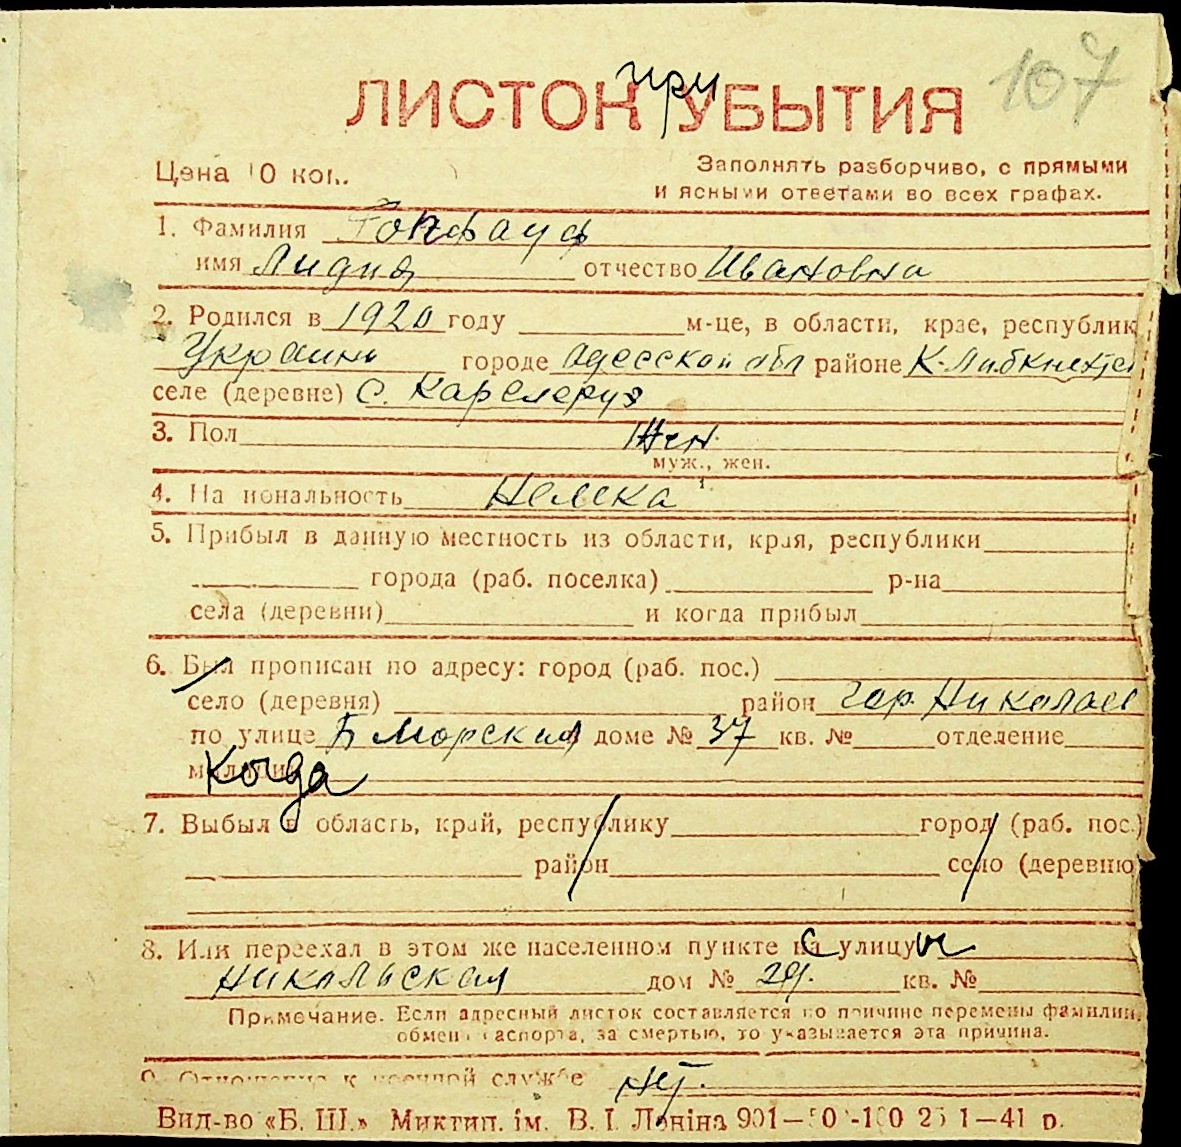 107
ЛИСТОК при УБЫТИЯ
Цена 10 коп.
Заполнять разборчиво, с прямыми
и ясными ответами во всех графах.
1. Фамилия Гопфауф
имя Лидия отчество Ивановна
2. Родился в 1920 году м-це, в области, крае, республик
Украина городе Одесской обл районе К-Либкнехтс
селе (деревне) с. Карслеруэ
3. Пол Жен.
муж., жен.
4. Национальность Немка
5. Прибыл в данную местность из области, края, республики
города (раб. поселка) р-на
села (деревни) и когда прибыл
6. Был прописан по адресу: город (раб. пос.)
село (деревня) район гор. Николаев
по улице Б Морская доме № 37 кв. № отделение
милиции Когда
7. Выбыл в область, край, республику город (раб. пос.)
район село (деревню
8. Или переехал в этом же населенном пункте на с улицу ы
Никольская дом № 29. кв. №
Примечание. Если адресный листок составляется по причине перемены фамилии,
обмена паспорта, за смертью, то указывается эта причина.
9. Отношение к военной службе нет.
Вид-во «Б. Ш.» Миктип. ім. В. І. Леніна 901— 25 1—41 р.